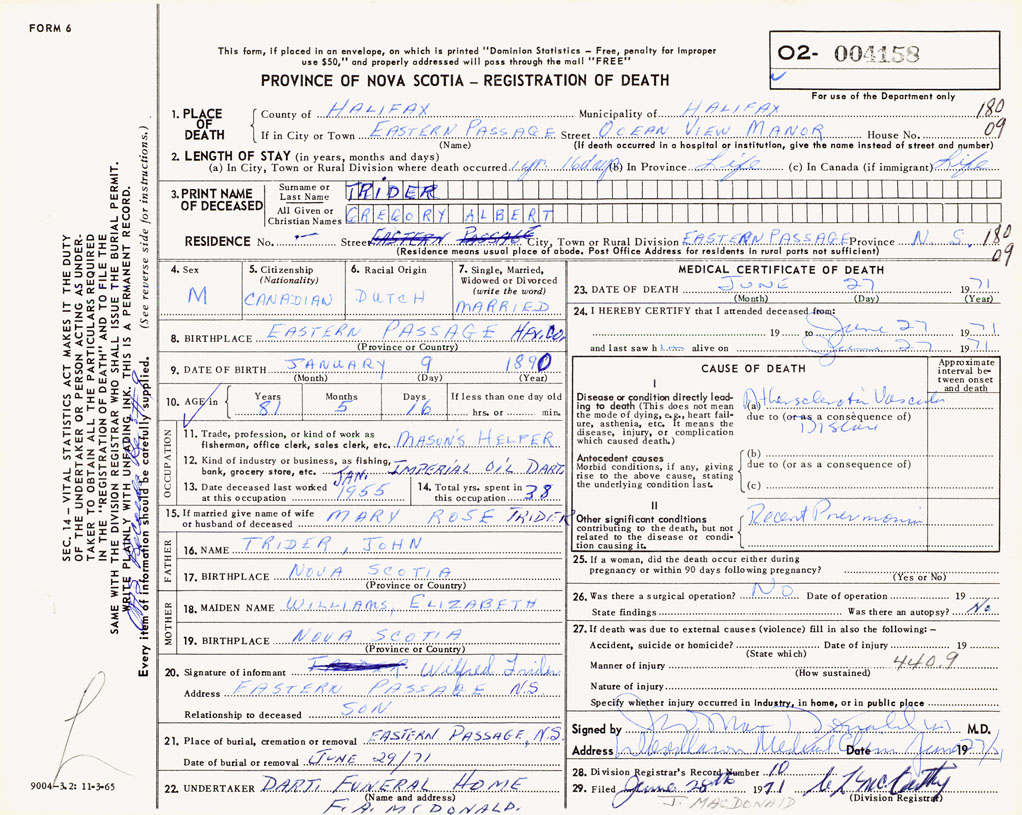 FORM 6
This form, if placed in an envelope, on which is printed "Dominion Statistics – Free, penalty for improper
use $50," and properly addressed will pass through the mail "FREE"
PROVINCE OF NOVA SCOTIA – REGISTRATION OF DEATH
O2- 004158
For use of the Department only
1. PLACE OF DEATH
County of HALIFAX Municipality of HALIFAX 180
If in City or Town EASTERN PASSAGE Street OCEAN VIEW MANOR House No. 09
(Name) (If death occurred in a hospital or institution, give the name instead of street and number)
2. LENGTH OF STAY (in years, months and days)
(a) In City, Town or Rural Division where death occurred 1 yr. 16 days (b) In Province Life (c) In Canada (if immigrant) Life
3. PRINT NAME OF DECEASED
Surname or Last Name TRIDER
All Given or Christian Names GREGORY ALBERT
RESIDENCE No. – Street EASTERN PASSAGE City, Town or Rural Division EASTERN PASSAGE Province N. S. 180
(Residence means usual place of abode. Post Office Address for residents in rural parts not sufficient) 09
4. Sex
M
5. Citizenship
(Nationality)
CANADIAN
6. Racial Origin
DUTCH
7. Single, Married,
Widowed or Divorced
(write the word)
MARRIED
8. BIRTHPLACE EASTERN PASSAGE HFX. CO.
(Province or Country)
9. DATE OF BIRTH JANUARY 9 1890
(Month) (Day) (Year)
10. AGE in
Years Months Days If less than one day
81 5 16 hrs. or min.
OCCUPATION
11. Trade, profession, or kind of work as
fisherman, office clerk, sales clerk, etc. MASON'S HELPER
12. Kind of industry or business, as fishing,
bank, grocery store, etc. IMPERIAL OIL DART.
13. Date deceased last worked
at this occupation JAN. 1955
14. Total yrs. spent in
this occupation 38
15. If married give name of wife
or husband of deceased MARY ROSE TRIDER
FATHER
16. NAME TRIDER, JOHN
17. BIRTHPLACE NOVA SCOTIA
(Province or Country)
MOTHER
18. MAIDEN NAME WILLIAMS, ELIZABETH
19. BIRTHPLACE NOVA SCOTIA
(Province or Country)
20. Signature of informant Wilfred Trider
Address EASTERN PASSAGE N.S
Relationship to deceased SON
21. Place of burial, cremation or removal EASTERN PASSAGE, N.S.
Date of burial or removal JUNE 29/71
22. UNDERTAKER DART. FUNERAL HOME
(Name and address)
F. A. McDONALD.
MEDICAL CERTIFICATE OF DEATH
23. DATE OF DEATH JUNE 27 1971
(Month) (Day) (Year)
24. I HEREBY CERTIFY that I attended deceased from:
19 to June 27 1971
and last saw him alive on June 27 1971
CAUSE OF DEATH
Approximate
interval be-
tween onset
and death
I
Disease or condition directly lead-
ing to death (This does not mean
the mode of dying, e.g., heart fail-
ure, asthenia, etc. It means the
disease, injury, or complication
which caused death.)
(a) Atherosclerotic Vascular
due to (or as a consequence of)
Disease
Antecedent causes
Morbid conditions, if any, giving
rise to the above cause, stating
the underlying condition last.
(b)
due to (or as a consequence of)
(c)
II
Other significant conditions
contributing to the death, but not
related to the disease or condi-
tion causing it.
Recent Pneumonia
25. If a woman, did the death occur either during
pregnancy or within 90 days following pregnancy?
(Yes or No)
26. Was there a surgical operation? NO Date of operation 19
State findings Was there an autopsy? No
27. If death was due to external causes (violence) fill in also the following: –
Accident, suicide or homicide? Date of injury 19
(State which)
Manner of injury 440.9
(How sustained)
Nature of injury
Specify whether injury occurred in industry, in home, or in public place
Signed by M.D.
Address Medical Date June 27 1971
28. Division Registrar's Record Number 10
29. Filed June 28th 1971 McCarthy
(Division Registrar)
J. MACDONALD
SEC. 14 – VITAL STATISTICS ACT MAKES IT THE DUTY
OF THE UNDERTAKER OR PERSON ACTING AS UNDER-
TAKER TO OBTAIN ALL THE PARTICULARS REQUIRED
IN THE "REGISTRATION OF DEATH" AND TO FILE THE
SAME WITH THE DIVISION REGISTRAR WHO SHALL ISSUE THE BURIAL PERMIT.
WRITE PLAINLY WITH UNFADING INK. THIS IS A PERMANENT RECORD.
Every item of information should be carefully supplied. (See reverse side for instructions.)
9004-3.2: 11-3-65